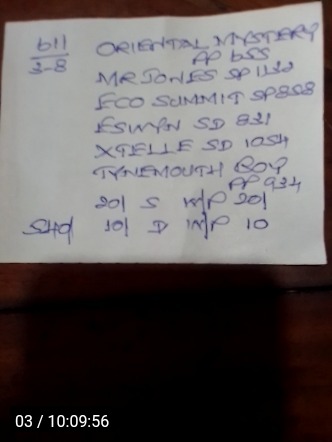 611
3-8
ORIENTAL MYSTERY
PP 655
MR JONES SP 1132
ECO SUMMIT SP 858
ESWYN SD 831
XTELLE SD 1054
TYNEMOUTH BOY
PP 934
20/ S W/P 20/
10/ D W/P 10
03 / 10:09:56